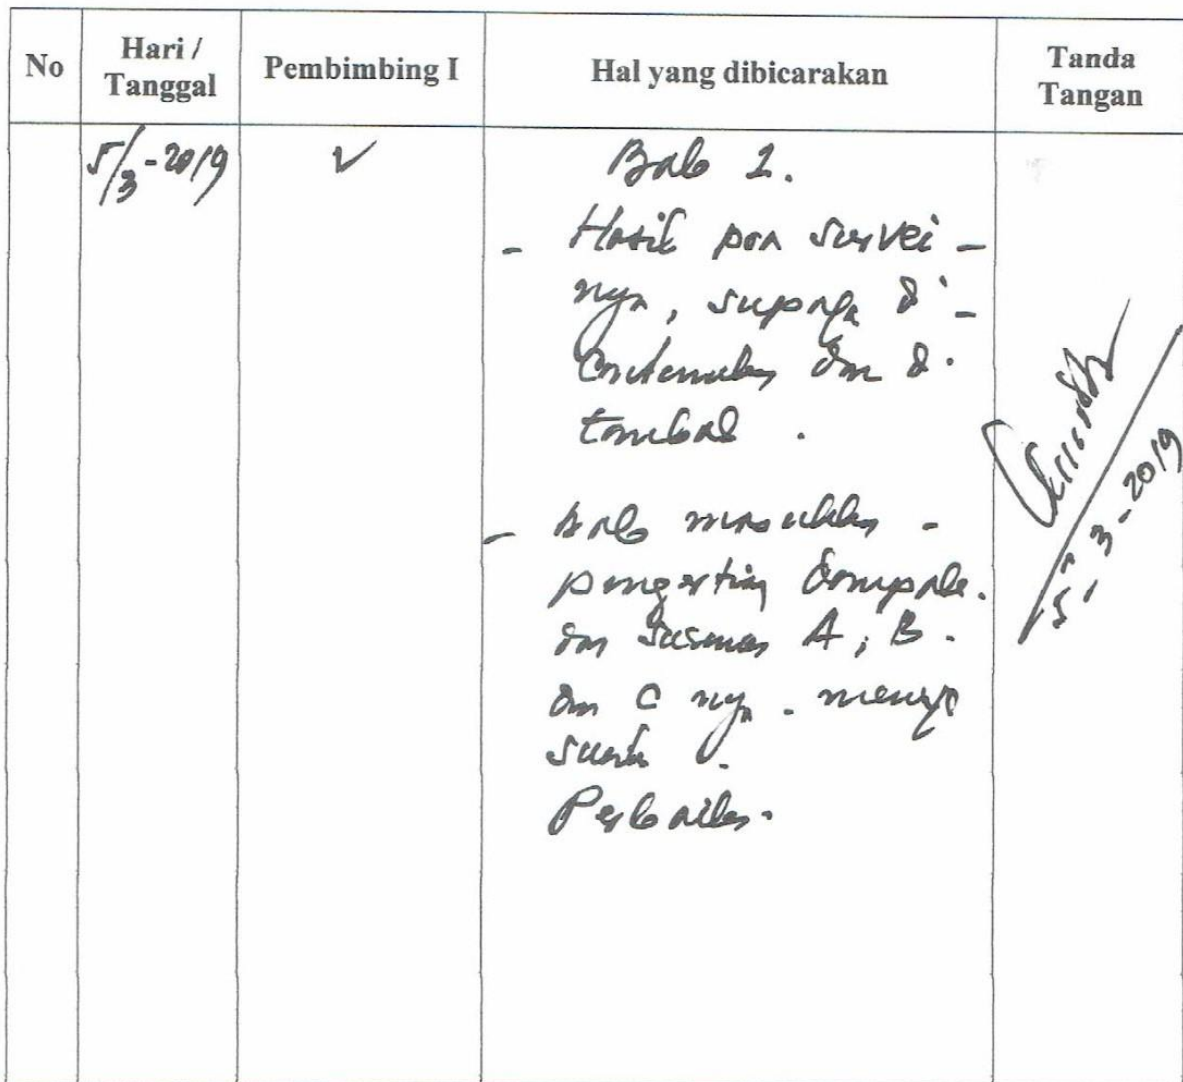 No
Hari /
Tanggal
Pembimbing I
Hal yang dibicarakan
Tanda
Tangan
5/3-2019
Bab 1.
- Hasil pra survei -
nya, supaya di -
dan di.
tambah.
- masukkan -
pengertian dampak.
dan susunan A, B.
dan C nya.
Perbaikan.
5-3-2019